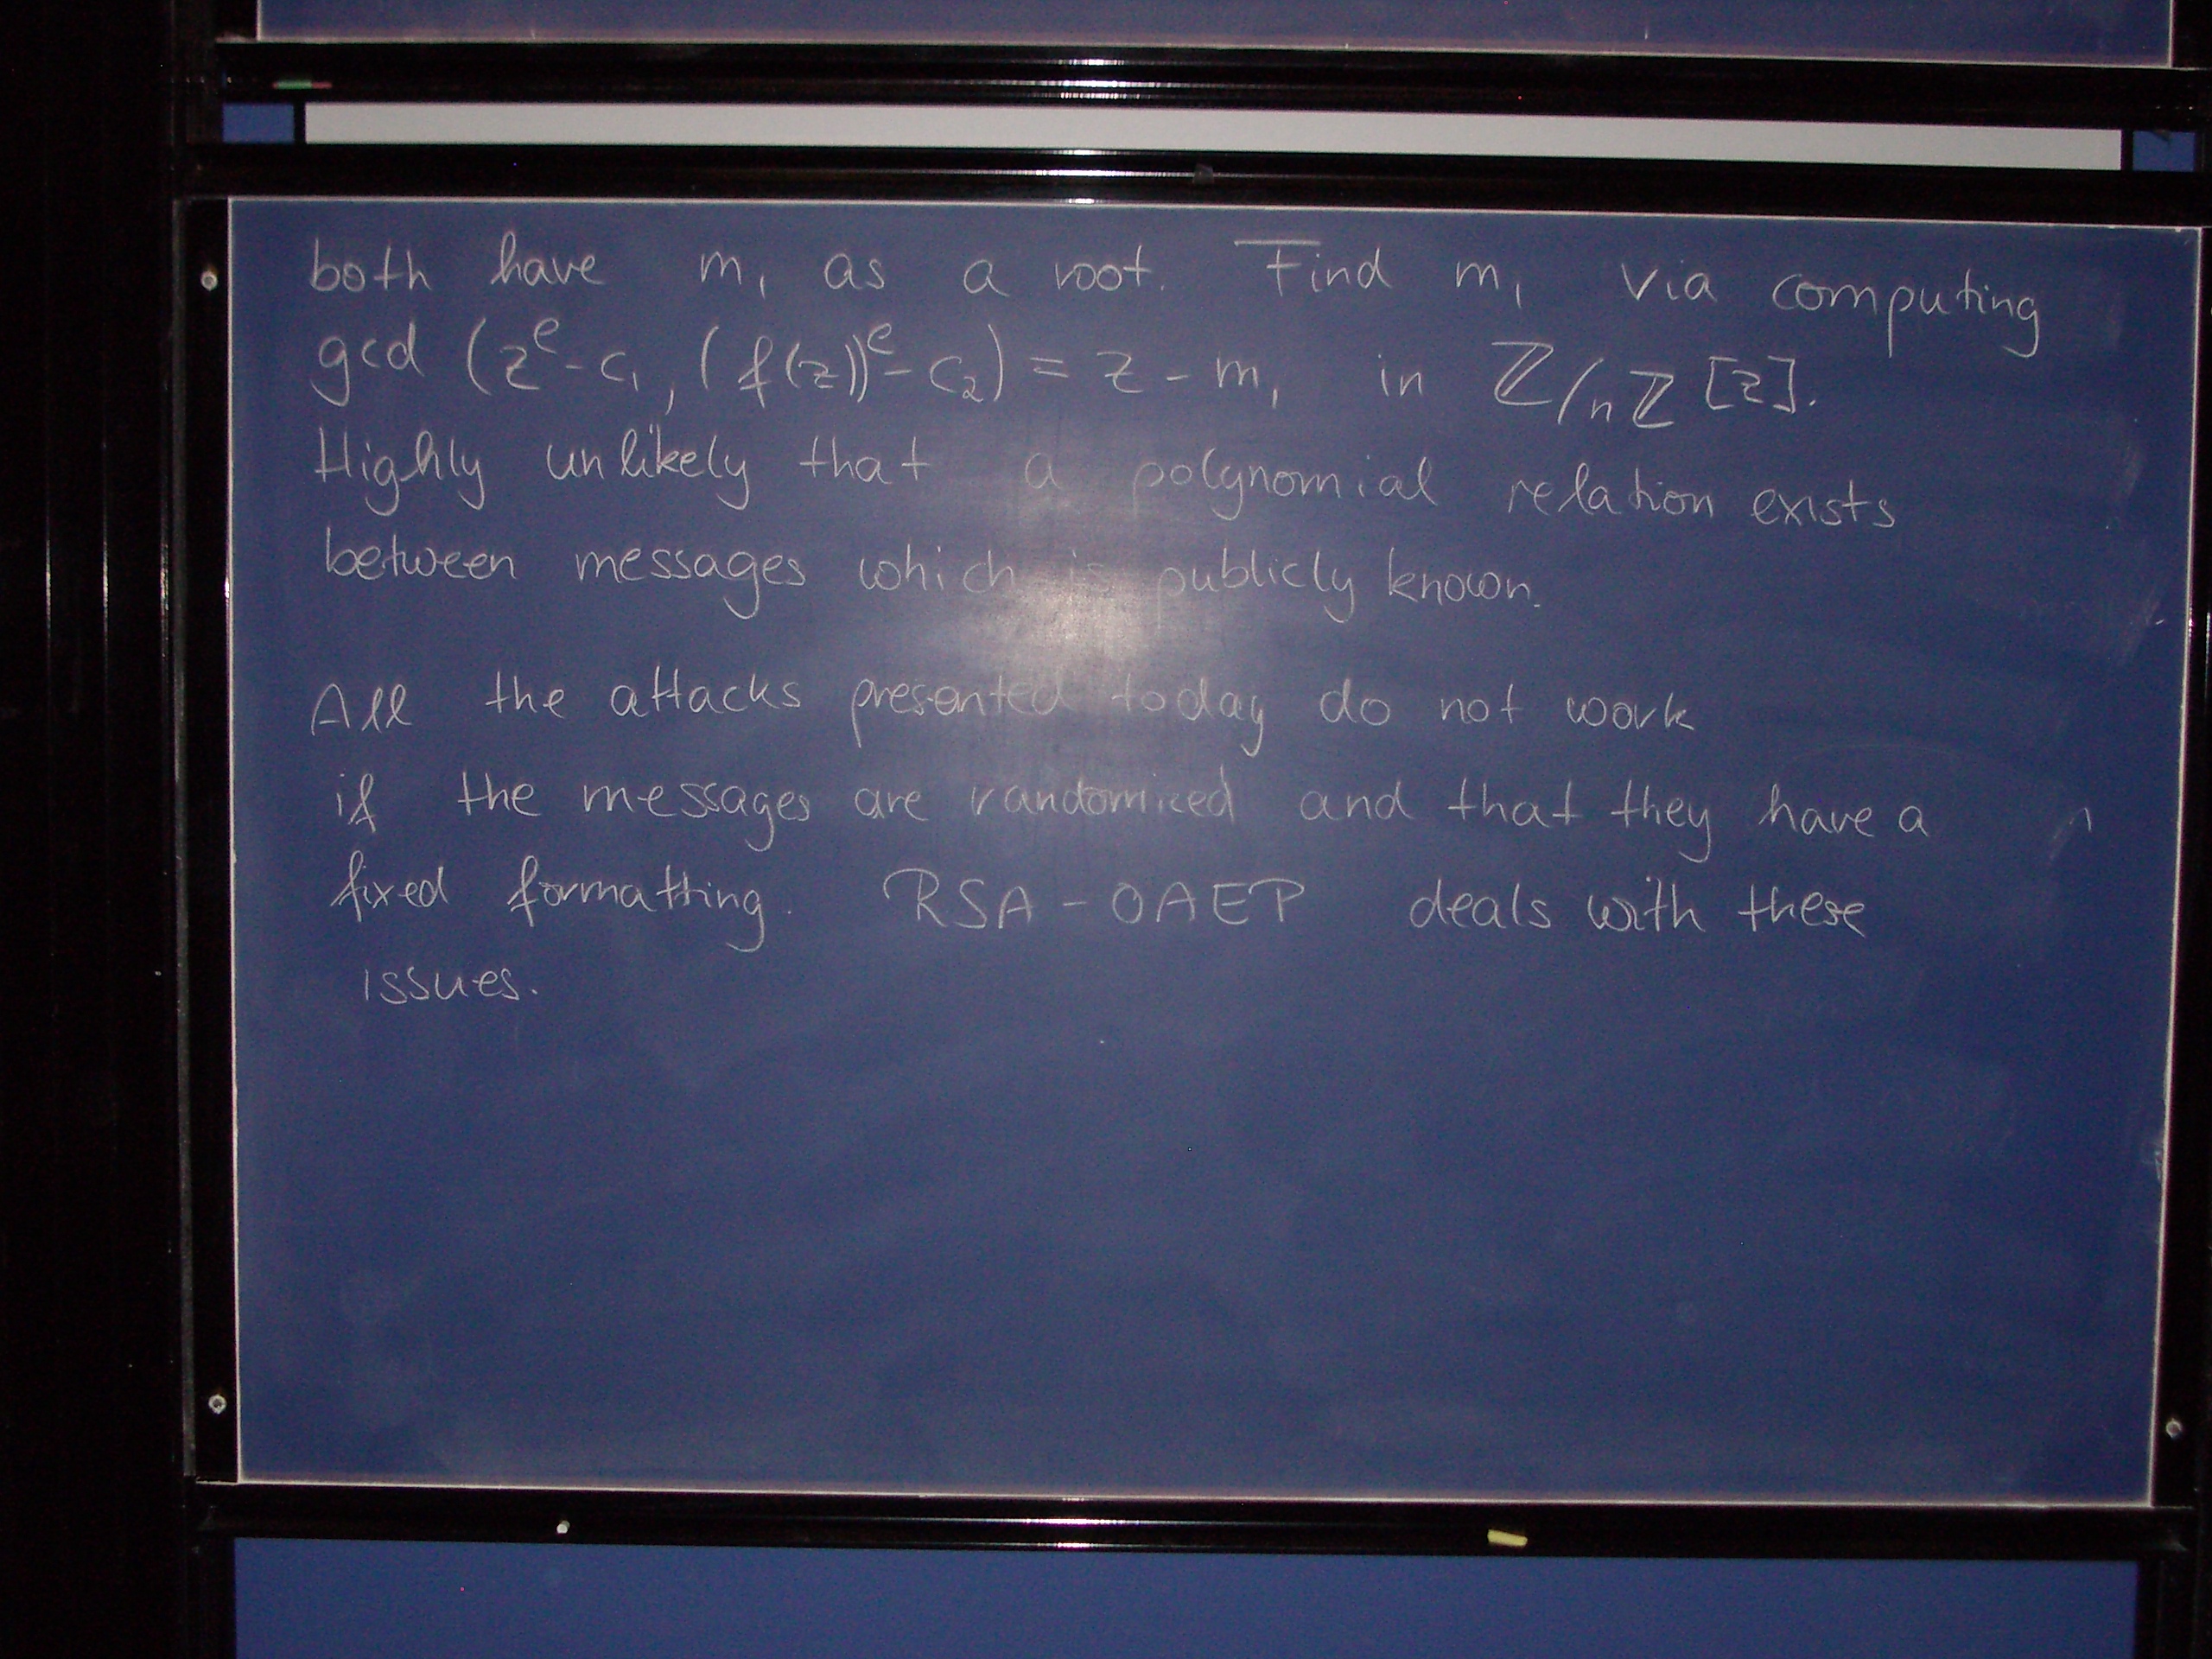 both have m₁ as a root. Find m₁ via computing
gcd (z^e - c₁, (f(z))^e - c₂) = z - m₁ in ℤ/nℤ [z].
Highly unlikely that a polynomial relation exists
between messages which is publicly known.
All the attacks presented today do not work
if the messages are randomized and that they have a
fixed formatting. RSA-OAEP deals with these
issues.